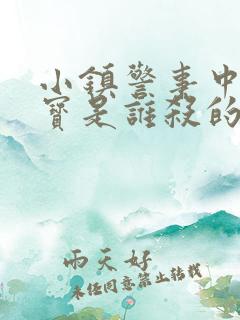 小鎮警事中
寶是誰殺的
雨天好
未經同意禁止轉載